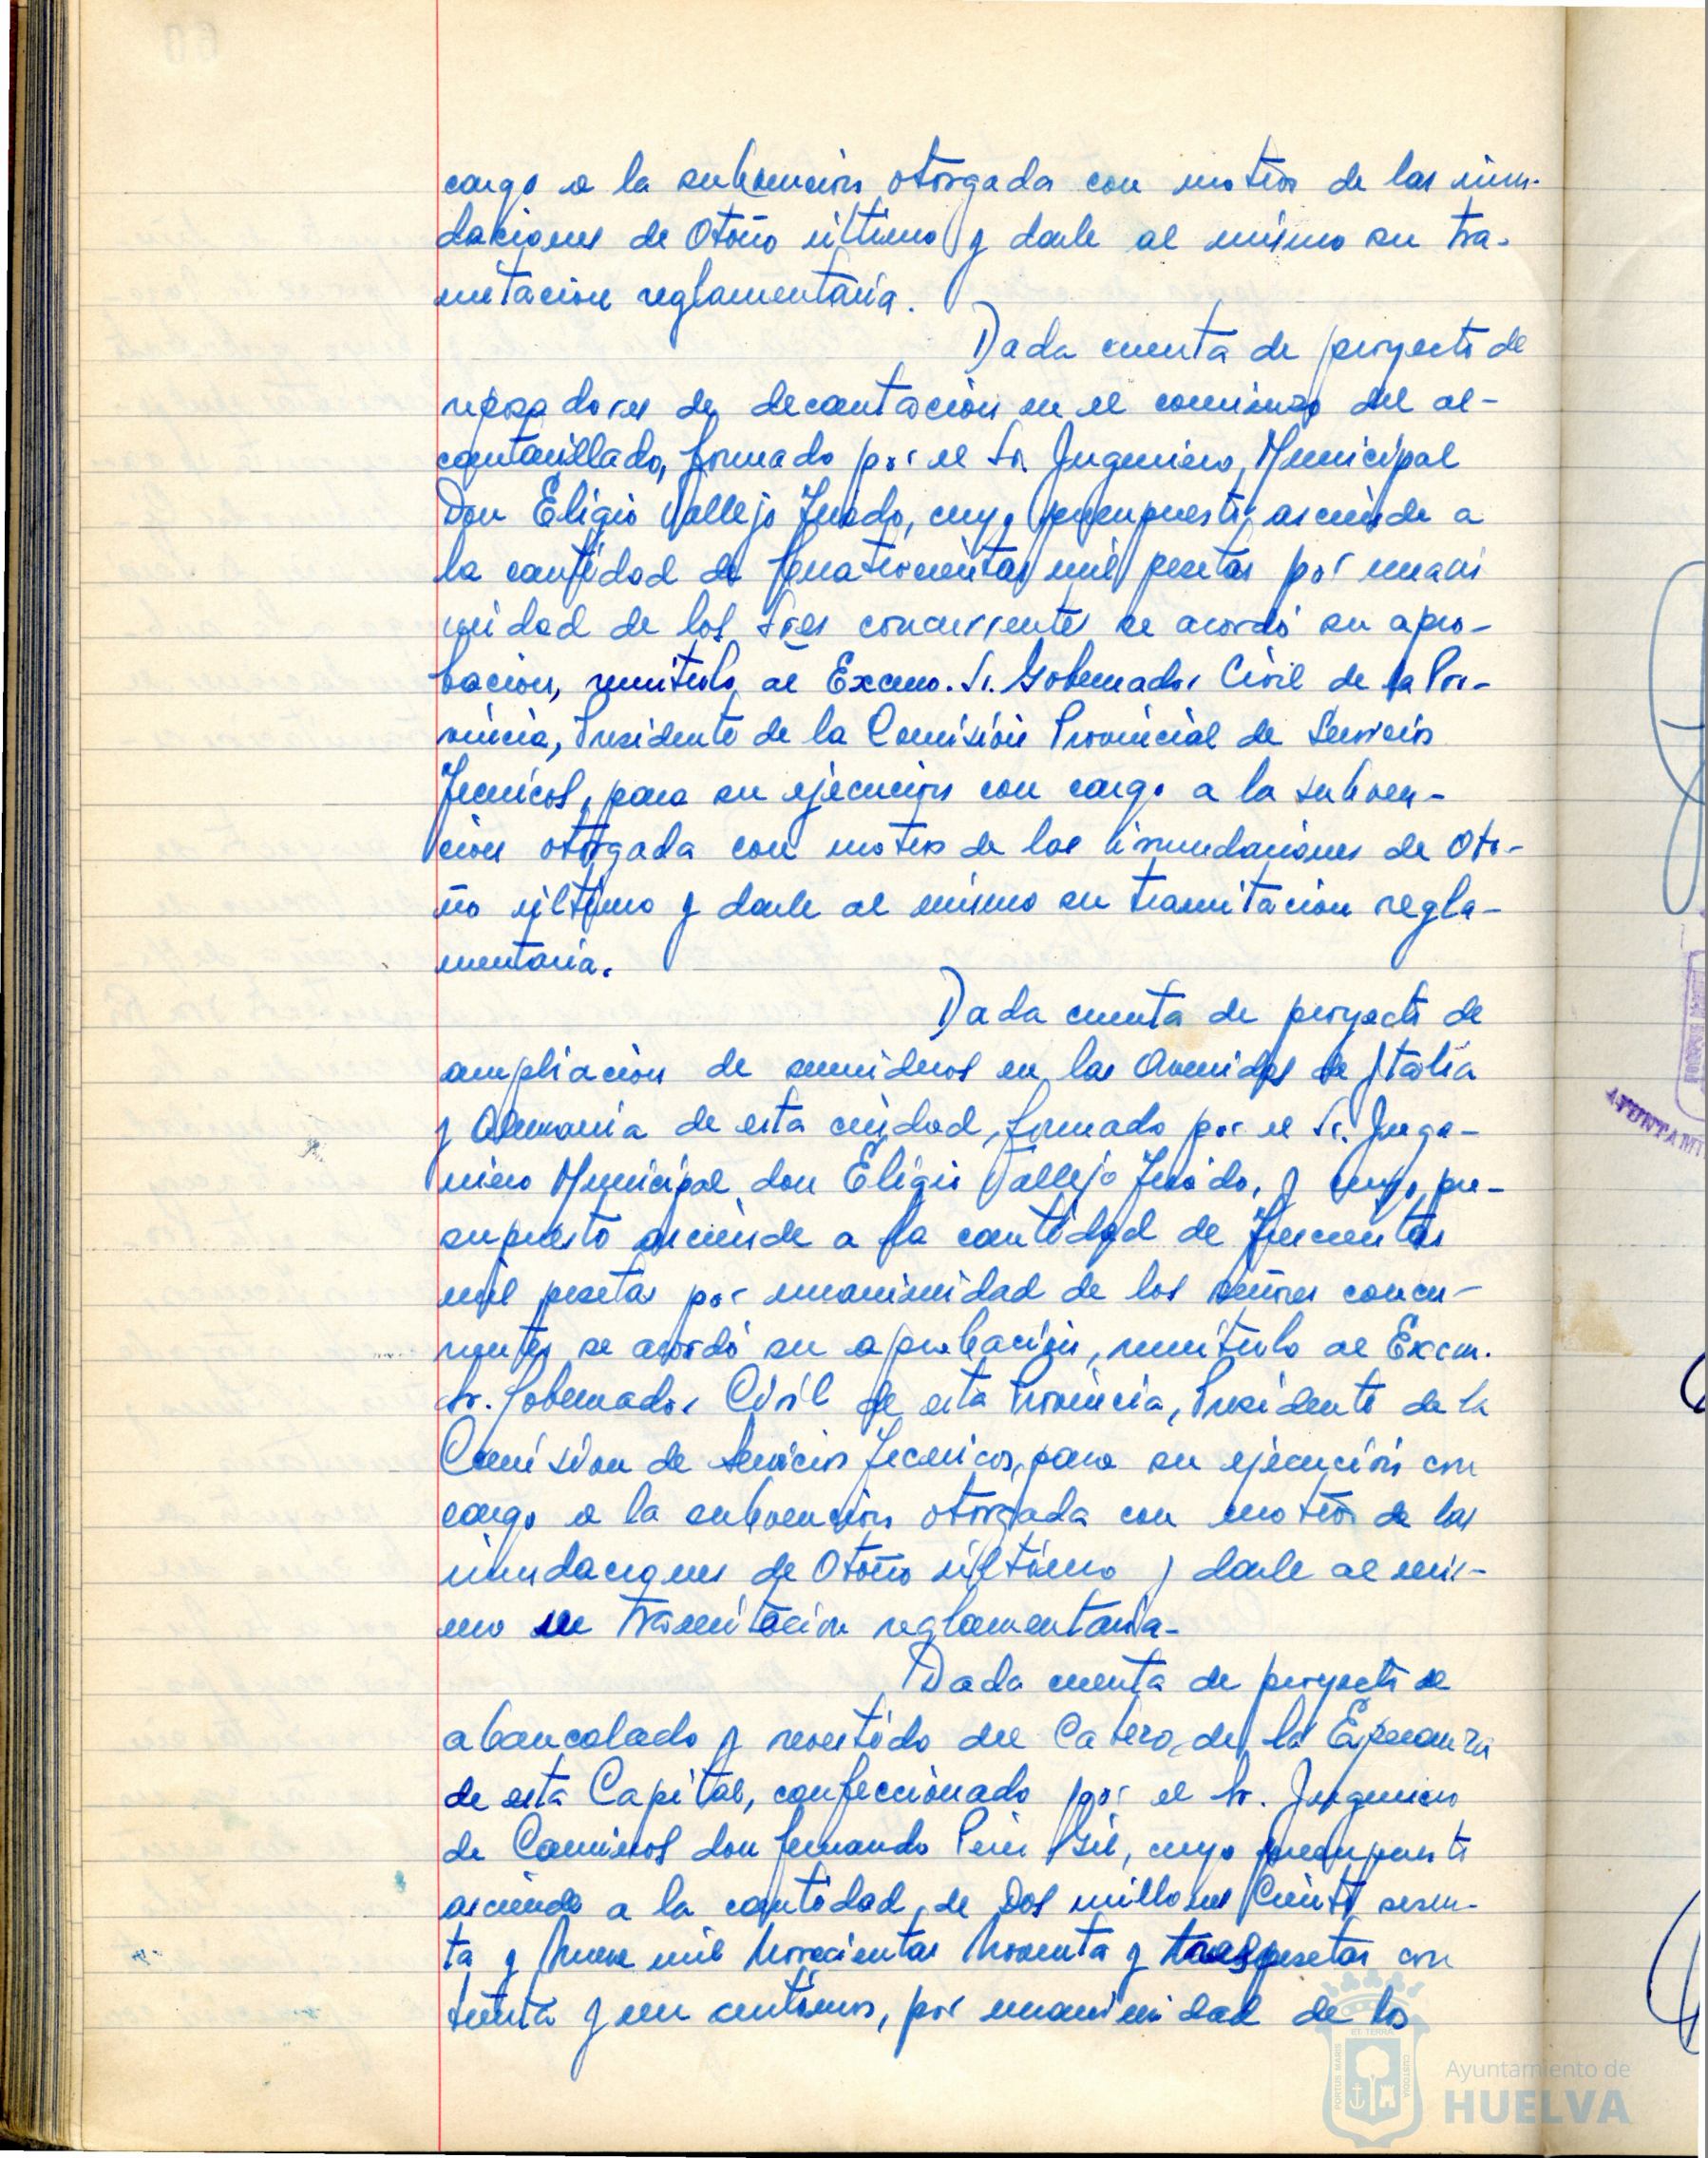 cargo a la subvención otorgada con motivo de las inun-
daciones de Otoño último y darle al mismo su tra-
mitación reglamentaria.
Dada cuenta de proyecto de
reposadores de decantación en el comienzo del al-
cantarillado, formado por el Sr. Ingeniero Municipal
Don Eligio Vallejo Jurado, cuyo presupuesto asciende a
la cantidad de Cuatrocientas mil pesetas por unani
midad de los Sres concurrentes se acordó su apro-
bación, remitirlo al Excmo. Sr. Gobernador Civil de la Pro-
vincia, Presidente de la Comisión Provincial de Servicios
Tecnicos, para su ejecución con cargo a la subven-
ción otorgada con motivo de las inundaciones de Oto-
ño último y darle al mismo su tramitación regla-
mentaria.
Dada cuenta de proyecto de
ampliación de sumideros en las Avenidas de Italia
y Alemania de esta ciudad, formado por el Sr. Inge-
niero Municipal don Eligio Vallejo Jurado, y cuyo pre-
supuesto asciende a la cantidad de Trescientas
mil pesetas por unanimidad de los señores concu-
rrentes se acordó su aprobación, remitirlo al Excm.
Sr. Gobernador Civil de esta Provincia, Presidente de la
Comisión de Servicios Tecnicos, para su ejecución con
cargo a la subvención otorgada con motivo de las
inundaciones de Otoño último y darle al mis-
mo su tramitación reglamentaria-
Dada cuenta de proyecto de
abancalado y revestido del Cabezo de la Esperanza
de esta Capital, confeccionado por el Sr. Ingeniero
de Caminos don Fernando Gil, cuyo presupuesto
asciende a la cantidad de Dos millones Ciento sesen-
ta y Nueve mil Novecientas Noventa y tres pesetas con
treinta y un centimos, por unanimidad de los
AYUNTAMI
PORTUS MARIS
ET TERRA
CUSTODIA
Ayuntamiento de
HUELVA